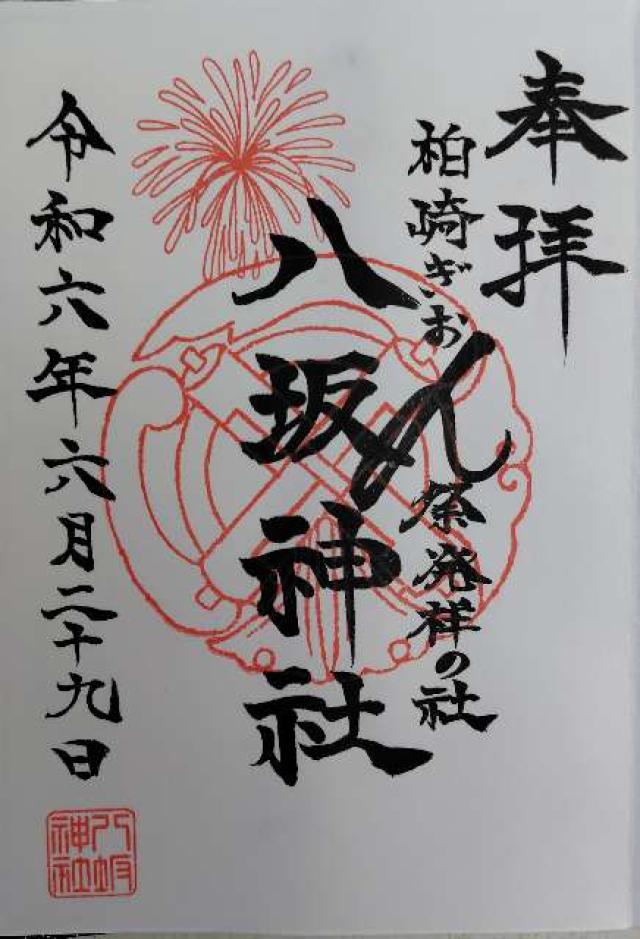 奉拝
柏崎ぎおん祭発祥の社
八坂神社
令和六年六月二十九日
八坂
神社